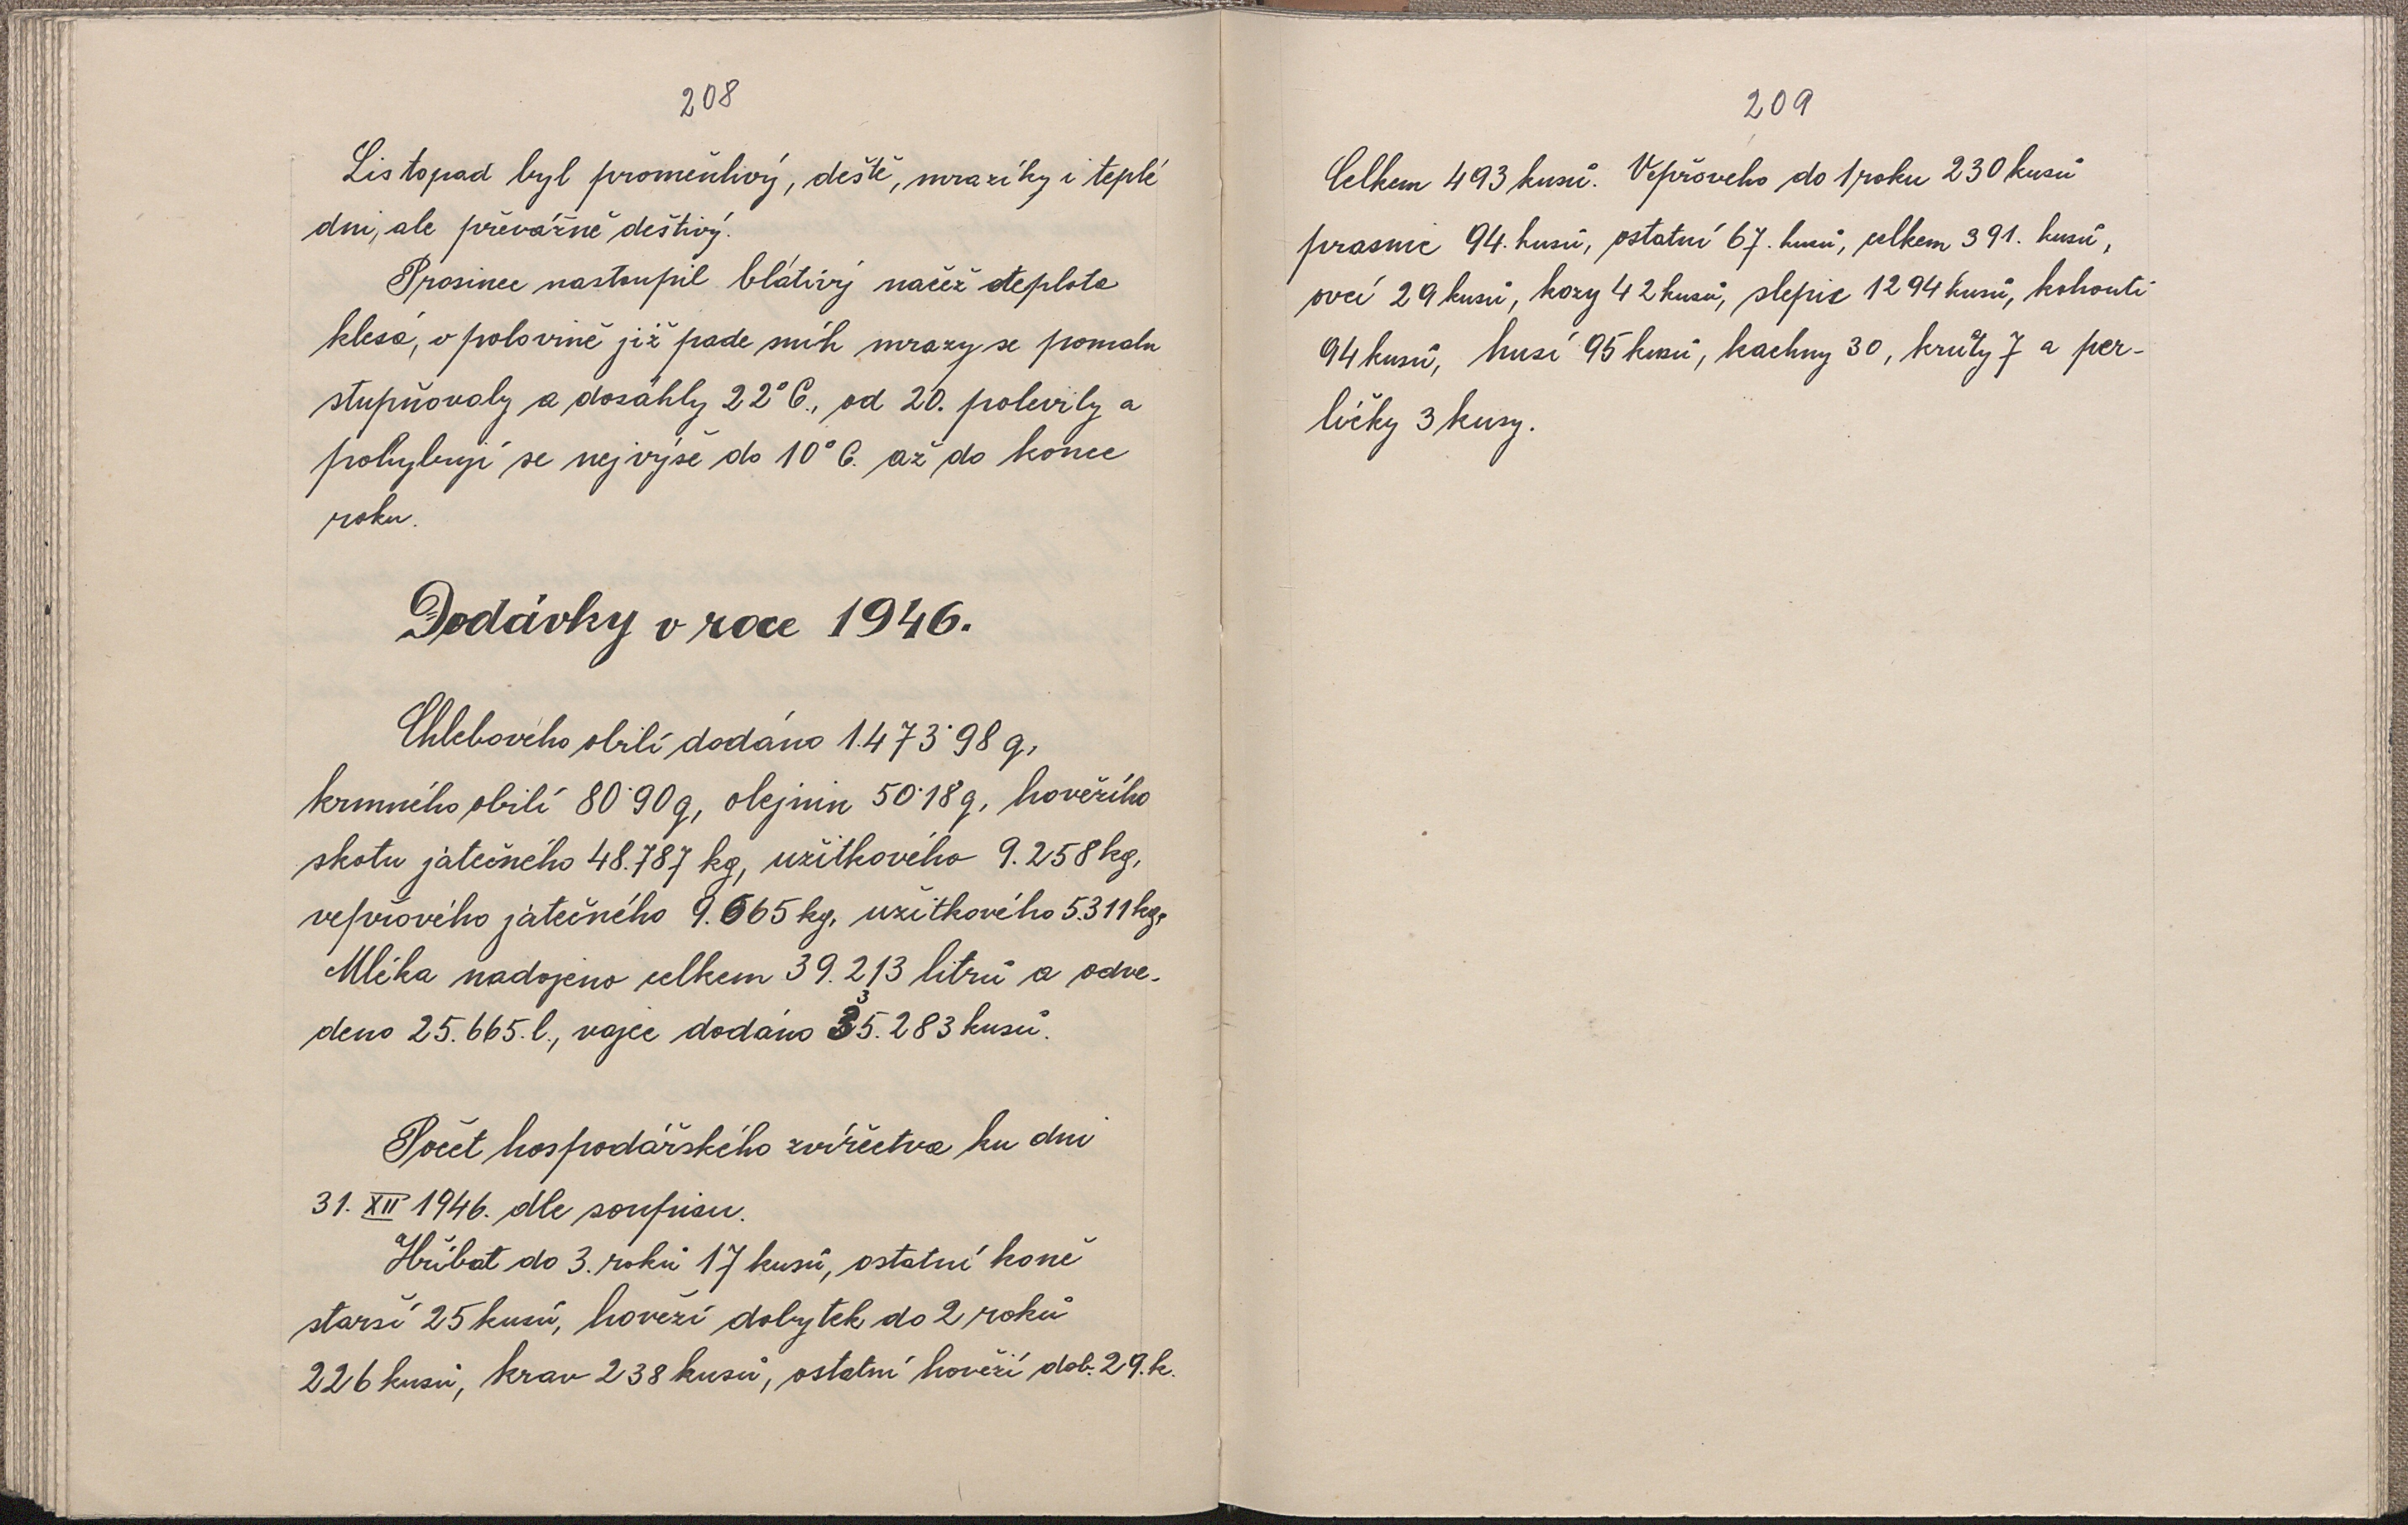 208
Listopad byl proměnlivý, deště, mrazíky i teplé
dni, ale převážně deštivý.
Prosinec nastoupil blátivý načež teplota
klesá, v polovině již pade sníh mrazy se pomalu
stupňovaly a dosáhly 22° C., od 20. polevily a
pohybují se nejvýše do 10° C. až do konce
roku.
Dodávky v roce 1946.
Chlebového obilí dodáno 1.473˙98 q,
krmného obilí 80˙90 q, olejnin 50˙18 q, hovězího
skotu jatečného 48.787 kg, užitkového 9.258 kg,
vepřového jatečného 9.665 kg, užitkového 5.311 kg,
Mléka nadojeno celkem 39.213 litrů a odve-
deno 25.665. l., vajec dodáno 35.283 kusů.
Počet hospodářského zvířectva ku dni
31. XII 1946. dle soupisu.
Hříbat do 3. roků 17 kusů, ostatní koně
starší 25 kusů, hovězí dobytek do 2 roků
226 kusů, krav 238 kusů, ostatní hovězí dob. 29. k.
209
Celkem 493 kusů. Vepřového do 1 roku 230 kusů
prasnic 94. kusů, ostatní 67. kusů, celkem 391. kusů,
ovcí 29 kusů, kozy 42 kusů, slepic 1294 kusů, kohouti
94 kusů, husí 95 kusů, kachny 30, krůty 7 a per-
ličky 3 kusy.